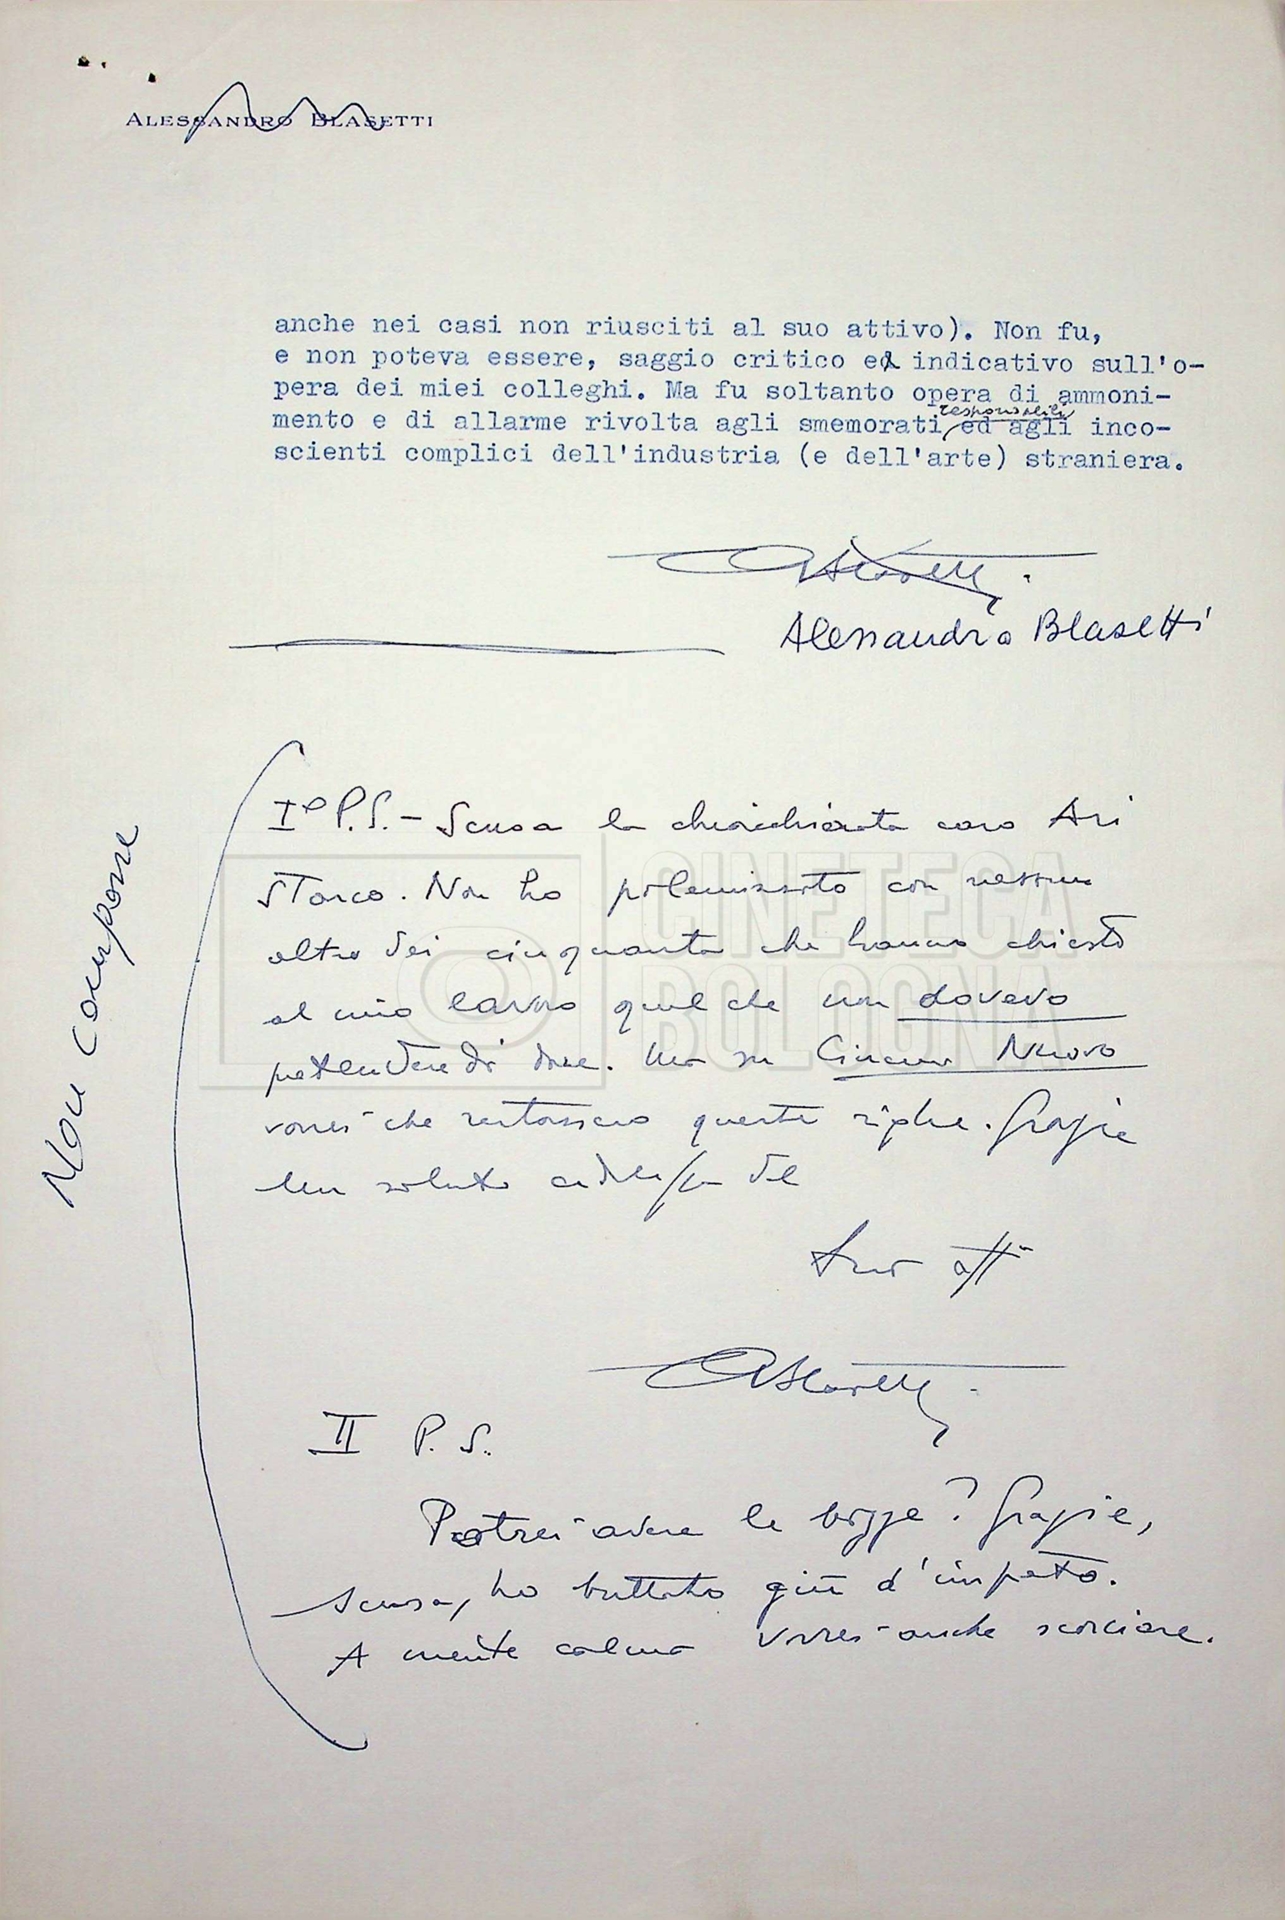 ALESSANDRO BLASETTI
anche nei casi non riusciti al suo attivo). Non fu,
e non poteva essere, saggio critico ed indicativo sull'o-
pera dei miei colleghi. Ma fu soltanto opera di ammoni-
responsabili
mento e di allarme rivolta agli smemorati, ed agli inco-
scienti complici dell'industria (e dell'arte) straniera.
ABlasetti.
Alessandro Blasetti
Non comporre
I° P.S. - Scusa la chiacchierata caro Ari
starco. Non ho polemizzato con nessun
altro dei cinquanta che hanno chiesto
al mio lavoro quel che non dovevo
pretendere di dare. Ma su Cinema Nuovo
vorrei che restassero queste righe. Grazie
Un saluto cordiale del
Suo aff
ABlasetti.
II P.S.
Potrei avere le bozze? Grazie,
scusa, ho buttato giù d'impeto.
A mente calma vorrei anche scorciare.
CINETECA
BOLOGNA